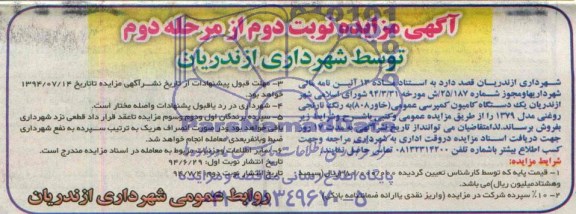 آگهی مزایده نوبت دوم از مرحله دوم
توسط شهرداری ازندریان
شهرداری ازندریان قصد دارد به استناد ماده ۱۳ آئین نامه مالی
شهرداریها و مجوز شماره ۲۵/۱۸۷/ش مورخه ۹۴/۳/۳۱ شورای اسلامی شهر
ازندریان یک دستگاه کامیون کمپرسی عمومی (خاور ۸۰۸) به رنگ نارنجی
روغنی مدل ۱۳۷۹ را از طریق مزایده عمومی و کتبی با شرایط زیر به
فروش برساند. لذا متقاضیان می توانند از تاریخ
جهت دریافت اسناد مزایده در وقت اداری به شهرداری مراجعه و جهت
کسب اطلاع بیشتر با شماره تلفن تماس حاصل نمایند.
شرایط مزایده:
۱- قیمت پایه که توسط کارشناس تعیین گردیده
و هشتاد میلیون ریال) می باشد.
۲- ۱۰٪ سپرده شرکت در مزایده (واریز نقدی یا ارائه ضمانتنامه بانکی)
۳- مهلت قبول پیشنهادات از تاریخ نشر آگهی مزایده تا تاریخ ۱۳۹۴/۰۷/۱۴
خواهد بود.
۴- شهرداری در رد یا قبول پیشنهادات واصله مختار است.
۵- سپرده برندگان اول و دوم و سوم مزایده تا عقد قرار داد قطعی نزد شهرداری
باقی خواهد بود و در صورت انصراف هر یک به ترتیب سپرده به نفع شهرداری
ضبط و با نفر بعدی معامله انجام خواهد شد.
۶- سایر اطلاعات و جزئیات مربوط به معامله در اسناد مزایده مندرج است.
تاریخ انتشار نوبت اول: ۹۴/۶/۲۹
تاریخ انتشار نوبت دوم:
روابط عمومی شهرداری ازندریان